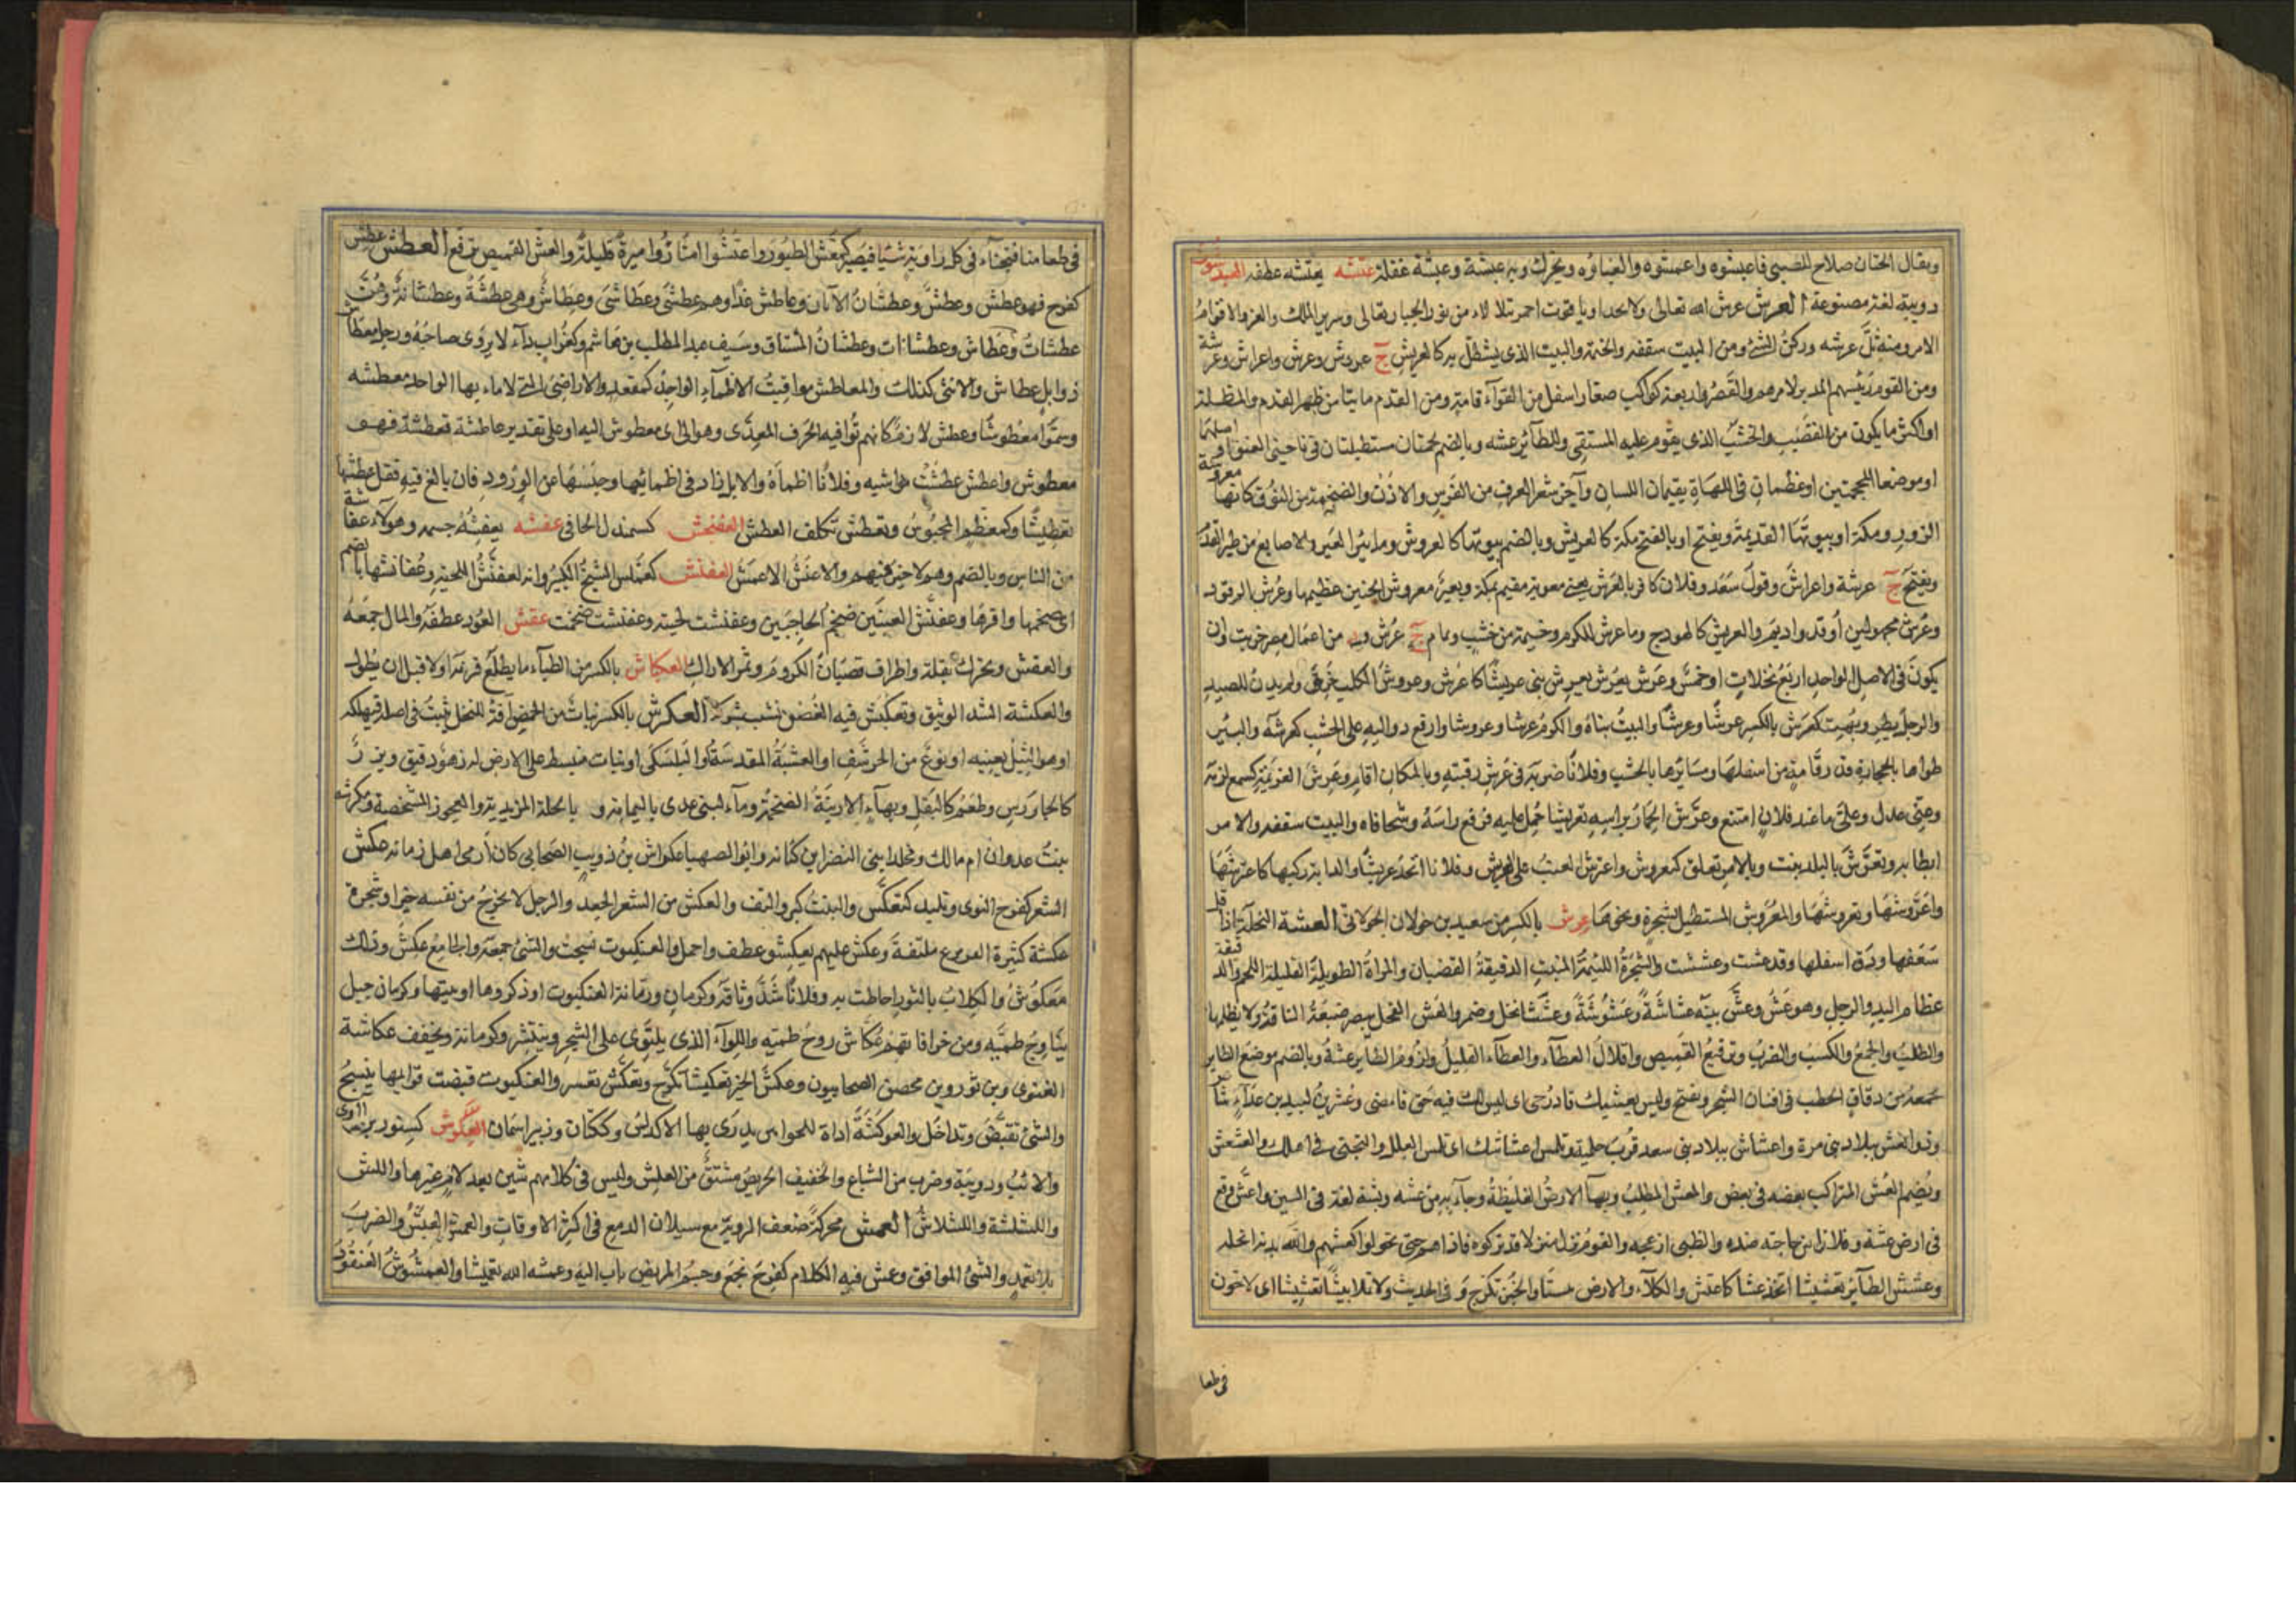 ويقال الختان صلاح للصبي فاعبشوه واعمشوه والغباوه ويحرك وبه عبشة وعبشة غفلة عتشه يعتشه عطفه العيدشون
دويبة لغة مصنوعة العرش عرش الله تعالى ولا يحد او ياقوت احمر يتلالاء من نور الجبار تعالى وسرير الملك والعز وقوام
الامر ومنه ثل عرشه وركن الشئ ومن البيت سقفه والخيمة والبيت الذى يستظل به كالعريش ج عروش وعرش واعراش وعرشة
ومن القوم رئيسهم المدبر لامرهم والقصر واربعة كواكب صغار اسفل من العواء قامة ومن القدم ما نتا من ظهر القدم والمظلة
او اكثر ما يكون من القصب والخشب الذى يقوم عليه المستقى وللطائر عشه وبالضم لحمتان مستطيلتان فى ناحيتى العنق او فى اصلهما
او موضعا المحجمتين او عظمان فى اللهاة يقيمان اللسان وآخر شعر العرف من الفرس والاذن والضخمة من النوق كانها معروشة
الزور ومكة او بيوتها القديمة ويفتح او بالفتح مكة كالعريش وبالضم بيوتها كالعروش وما بين العير والاصابع من ظهر القدم
ويفتح ج عرشة واعراش وقول سعد وفلان كافر بالعرش يعنى معوية مقيم بمكة وبعير معروش الجنبين عظيمهما وعرش الوقود
وعرش مجهولين أوقد واديم والعريش كالهودج وما عرش للكرم وخيمة من خشب وثمام ج عرش ود من اعمال مصر خربت وان
يكون فى الاصل الواحد اربع نخلات او خمس وعرش يعرش ويعرش بنى عريشا كاعرش وعرش الكلب خرق ولم يدن للصيد
والرجل بطر وبهت كعرش بالكسر عرشا وعرشا والبيت بناه والكرم عرشا وعروشا وارفع دواليه على الخشب كعرشه والبئر
طواها بالحجارة قدر قامة من اسفلها وسائرها بالخشب وفلانا ضربه فى عرش رقبته وبالمكان اقام وعرش الغريمه كسمع لزمه
وعنى عدل وعلى ما عند فلان امتنع وعرش الحمار براسه تعريشا حمل عليه فرفع راسه وشحافاه والبيت سقفه والامر
ابطا به وتعرش بالبلد ثبت وبالامر تعلق كتعروش واعترش العنب على العريش وفلانا اتخذ عريشا والدابة ركبها كاعترشها
واعروشها وتعروشها والمعروش المستطيل بشجرة ونحوها عرش بالكسر بن سعيد بن خولان الخولانى العشة النخلة اذا قل
سعفها ودق اسفلها وقد عشت وعششت والشجرة اللئيمة المنبت الدقيقة القضبان والمراة الطويلة القليلة اللحم والدقيقة
عظام اليد والرجل وهو عش وعش بينه عشاشة وعشوشة وعششا نحل وضمر والعش الفحل يبصر ضبعة الناقة ولا يظلمها
والطلب والجمع والكسب والضرب وترقيع القميص واقلال العطاء والعطاء القليل ولزوم الطاير عشه وبالضم موضع الطاير
يجمعه من دقاق الحطب فى افنان الشجر ويفتح وليس بعشك فادرجى اى ليس لك فيه حق فامضى
وذو العش ببلاد بنى مرة واعشاش ببلاد بنى سعد قرب طمية وتلمس اعشاشك اى تلمس العلل والتجنى فى اهلك والعشعش
ويضم العش المتراكب بعضه فى بعض والمعش المطلب وبهآ الارض الغليظة وجآء به من عشه وبشه لغة فى السين واعش وقع
فى ارض عشة وفلانا عن حاجته صده والظبى ازعجه والقوم نزل منزلا قد نزلوه فآذاهم حتى تحولوا كعشهم والله بدنه انحله
وعشش الطآئر تعشيشا اتخذ عشا كاعتش والكلآء والارض يبسا والخبز تكرج وفى الحديث ولا تملا بيتنا تعشيشا اى لا تخون
فى طعا
فى طعامنا فتخبآء فى كل زاوية شيئا فيصير كمعشش الطيور واعتشوا امتاروا ميرة قليلة والعش القميص ترقع العطش عطش
كفرح فهو عطش وعطش وعطشان الآن وعاطش غدا وهم عطشى وعطاشى وعطاش وهى عطشة وعطشانة وهن
عطشات وعطاش وعطشانات وعطشان المشتاق وسيف عبد المطلب بن هاشم وكغراب دآء لا يروى صاحبه ورجل معطاش
ذو ابل عطاش والانثى كذلك والمعاطش مواقيت الاظمآء الواحد كمقعد والاراضى التى لا ماء بها الواحدة معطشه
وسموا معطوشا وعطش لازم كانهم توا فيه الحرف المعدى وهو الى اى معطوش اليه او على تقدير عاطشة فعطشه فهو
معطوش واعطش عطشت مواشيه وفلانا اظمآه والابل زاد فى اظمائها وحبسها عن الورود فان بالغ فيه فقل عطشها
تعطيشا وكمعظم المحبوس وتعطش تكلف العطش العفنجش كسمندل الجافى عفشه يعفشه جمعه وهولآء عفاشة
من الناس وبالضم وهو من لا خير فيهم والاعفش الاعمش العفنش كعملس الشيخ الكبير وانه لعفنش اللحية وعفانشها بالضم
اى ضخمها وافرها وعفنش العينين ضخم الحاجبين وعفنشت لحيته وعفنشت ضخمت عقش العود عطفه والمال جمعه
والعقش ويحرك بقلة واطراف قضبان الكروم وثمر الاراك العكاش بالكسر من الظباء ما يطلع قرنه اولا قبل ان يطول
والعكشة الشد الوثيق وتعكش فيه الغصن نشب بشوكه العكرش بالكسر نبات من الحمض آفة للنخل ينبت فى اصله فيهلكه
او هو الثيل بعينه او نوع من الحرشف او العشبة المقدسة والبلسكى او نبات منبسط على الارض له زهر دقيق وبزر
كالجاورس وطعم كالبقل وبهآء الارنبة الضخمة وماء لبنى عدى باليمامة و بالحلة المزيدية والعجوز المتشنجة وعكرشة
بنت عدوان ام مالك ومخلد ابنى النضر بن كنانة وابو الصهباء عكراش بن ذويب الصحابى كان أرمى اهل زمانه عكش
الشعر كفرح التوى وتلبد كتعكش والنبت كثر والتف والعكش من الشعر الجعد والرجل لا يخرج من نفسه خيرا وشجرة
عكشة كثيرة الفروع ملتفة وعكش عليهم يعكش عطف وحمل والعنكبوت نسجت والشئ جمعه والجامع عكش وذلك
معكوش والكلاب بالثور احاطت به وفلانا شد وثاقه وكرمان ورمانة العنكبوت او ذكورها او بيتها وكرمان جبل
يناوح طمية ومن خرافاتهم عكاش زوج طمية واللوآء الذى يلتوى على الشجر وينتشر وكرمانة ويخفف عكاشة
الغنوى وبن ثور وبن محصن الصحابيون وعكش الخبز تعكيشا تكرج وتعكش تعسر والعنكبوت قبضت قوائمها ينسج
والشئ تقبض وتداخل والعوكشة اداة للحراس يذرى بها الاكداس وككتان وزبير اسمان العلوش كسنور بن آوى
والذئب ودويبة وضرب من السباع والخفيف الحريص مشتق من العلش وليس فى كلامهم شين بعد لام غيرها واللش
واللشلشة واللشلاش العمش محركة ضعف الروية مع سيلان الدمع فى اكثر الاوقات والعمش العبش والضرب
بلا تعمد والشئ الموافق وعش فيه الكلام كفرح نجع وجسم المريض ثاب اليه وعمشه الله تعميشا والعمشوش العنقود